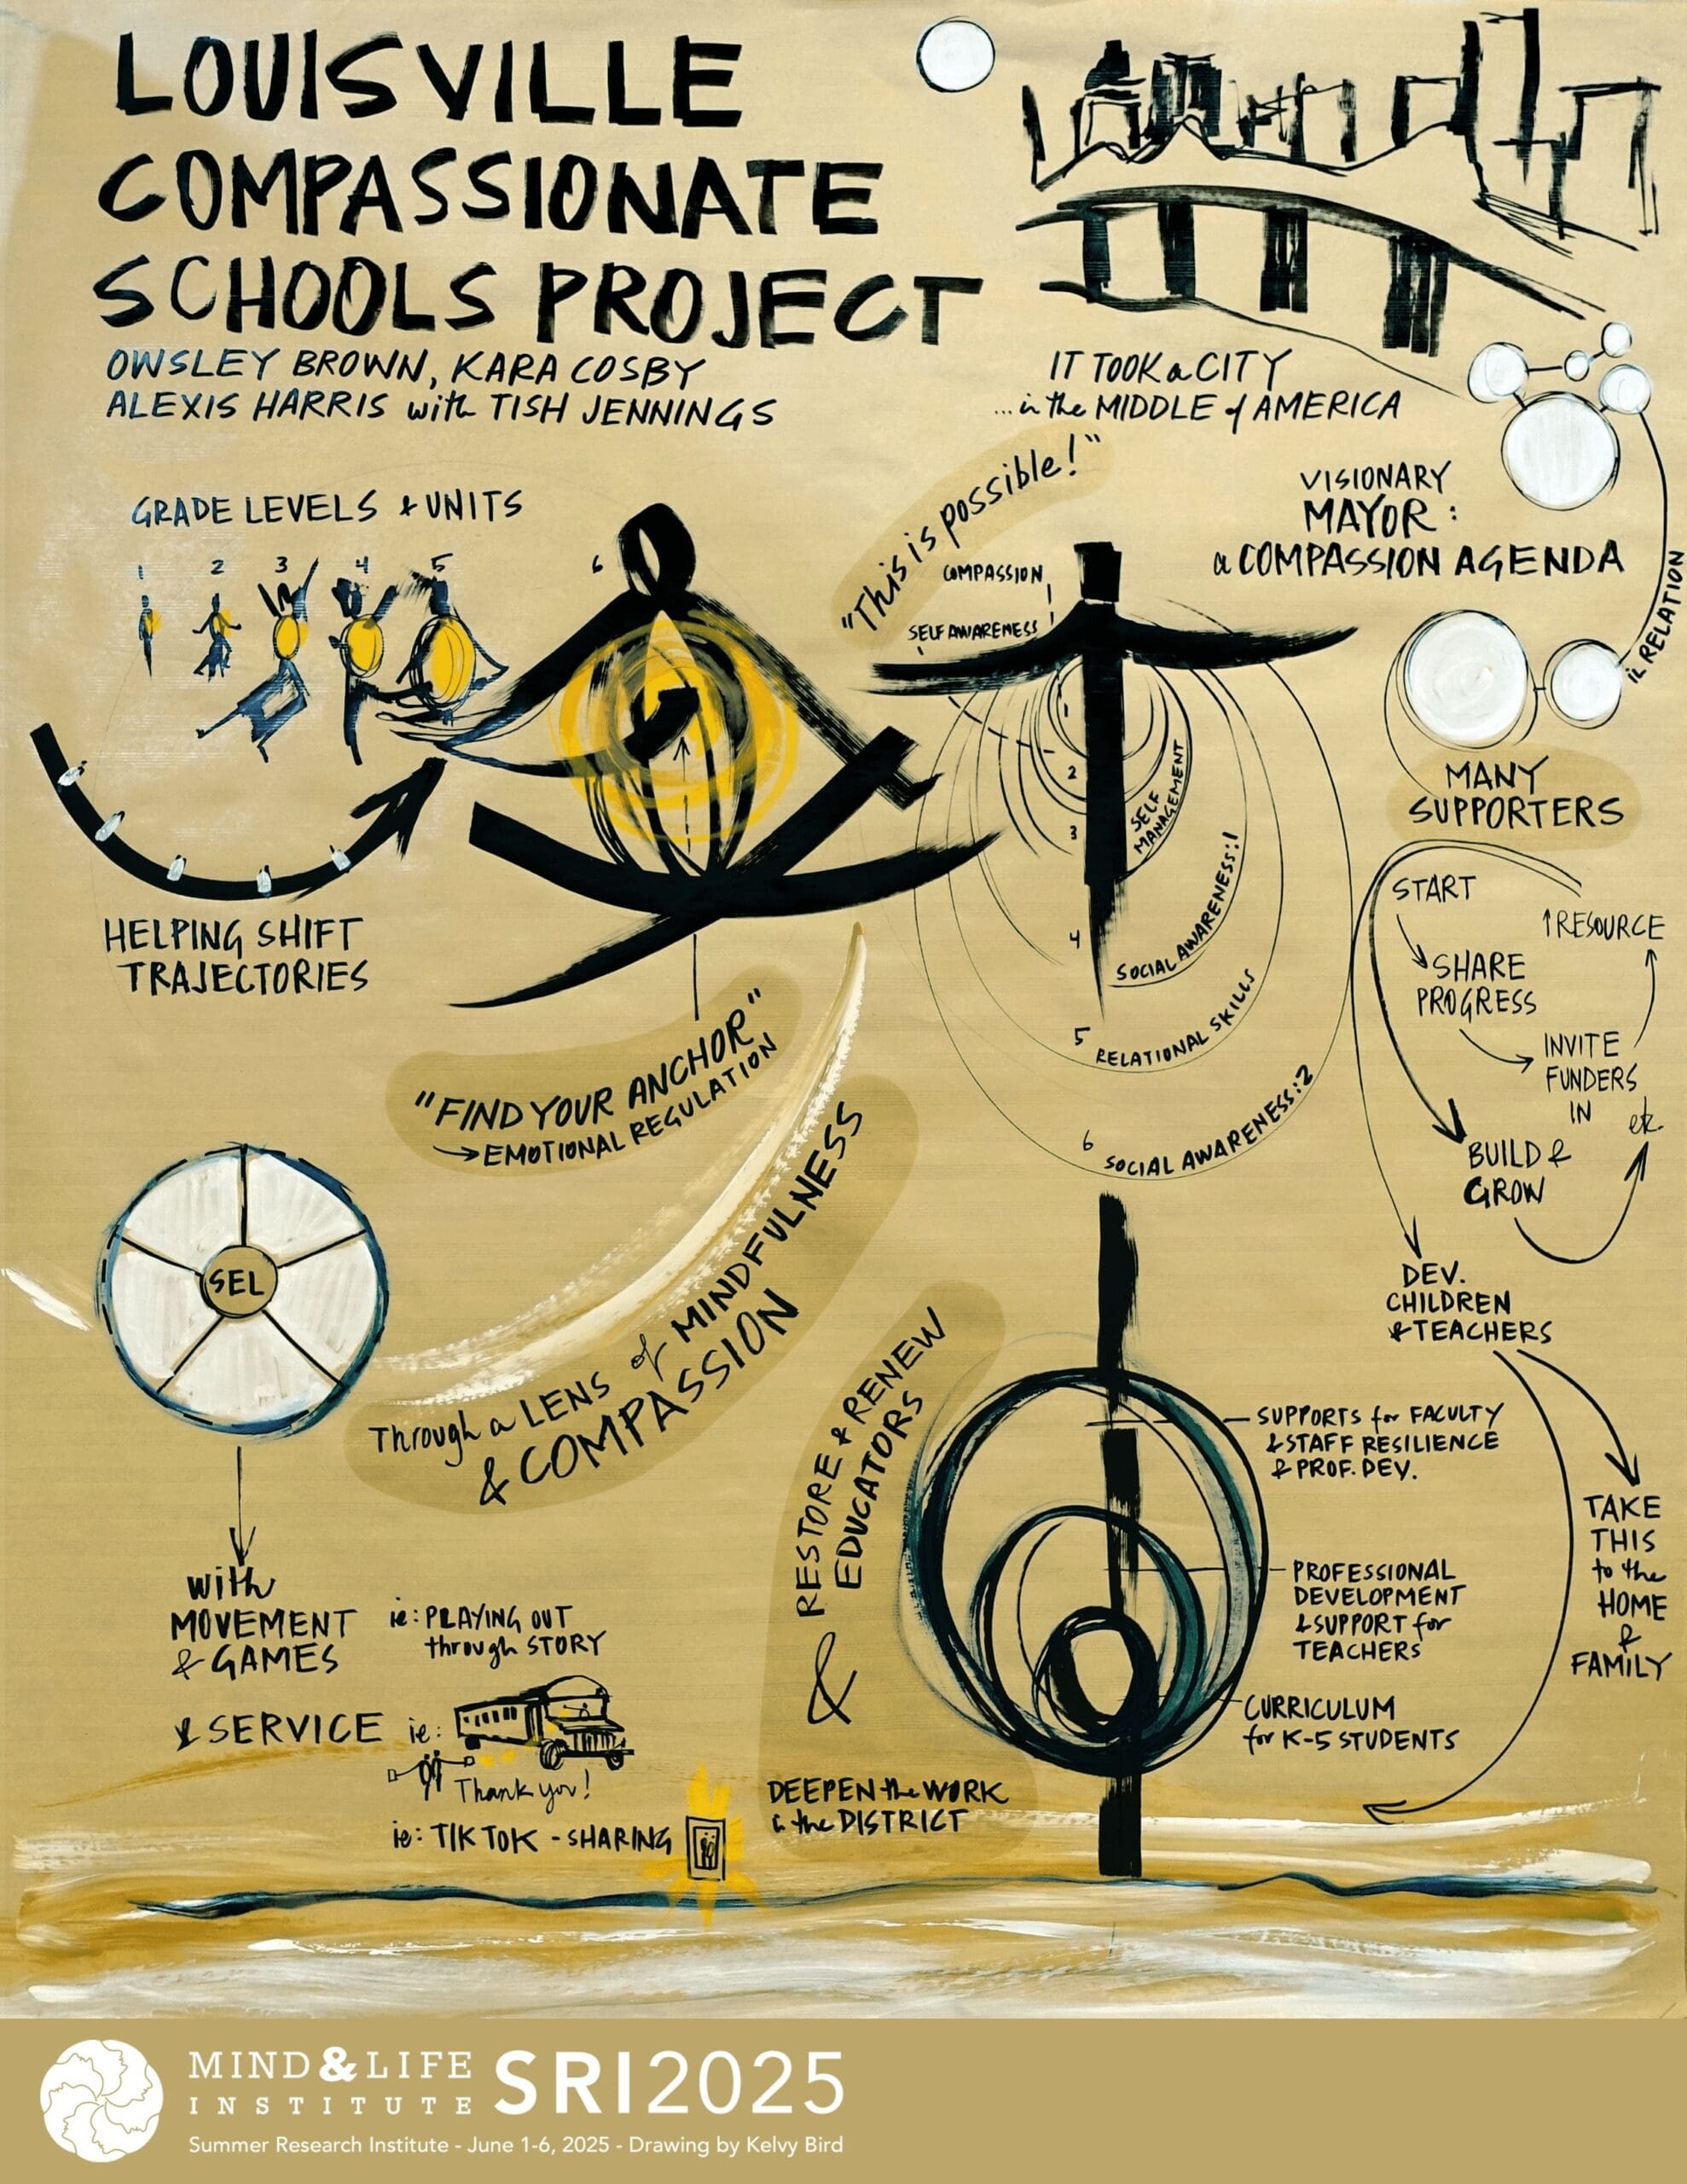 LOUISVILLE
COMPASSIONATE
SCHOOLS PROJECT
OWSLEY BROWN, KARA COSBY
ALEXIS HARRIS with TISH JENNINGS
IT TOOK a CITY
...in the MIDDLE of AMERICA
VISIONARY
MAYOR:
a COMPASSION AGENDA
in RELATION
MANY
SUPPORTERS
START
SHARE
PROGRESS
INVITE
FUNDERS
IN
↑RESOURCE
etc.
BUILD &
GROW
DEV.
CHILDREN
& TEACHERS
TAKE
THIS
to the
HOME
&
FAMILY
GRADE LEVELS & UNITS
1 2 3 4 5 6
HELPING SHIFT
TRAJECTORIES
"This is possible!"
COMPASSION
SELF AWARENESS
1
2
3
4
SELF
MANAGEMENT
SOCIAL AWARENESS:1
5 RELATIONAL SKILLS
6 SOCIAL AWARENESS:2
"FIND YOUR ANCHOR"
→ EMOTIONAL REGULATION
SEL
Through a LENS of MINDFULNESS
& COMPASSION
with
MOVEMENT
& GAMES
ie: PLAYING OUT
through STORY
& SERVICE ie:
Thank you!
ie: TIK TOK - SHARING
& RESTORE & RENEW
EDUCATORS
DEEPEN the WORK
in the DISTRICT
SUPPORTS for FACULTY
& STAFF RESILIENCE
& PROF. DEV.
PROFESSIONAL
DEVELOPMENT
& SUPPORT for
TEACHERS
CURRICULUM
for K-5 STUDENTS
MIND&LIFE
INSTITUTE
SRI2025
Summer Research Institute - June 1-6, 2025 - Drawing by Kelvy Bird